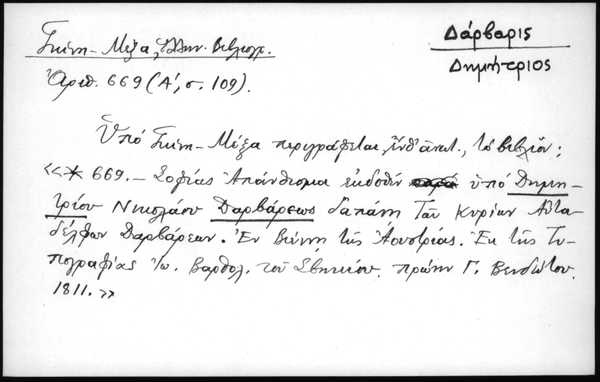 Γκίνη - Μέξα, Ἑλλην. Βιβλιογρ.
Ἀριθ. 669 (Α', σ. 109).
Δάρβαρις
Δημήτριος
Ὑπό Γκίνη - Μέξα περιγράφεται, ἔνθ' ἀνωτ., τό βιβλίον:
«* 669. - Σοφίας Ἀπάνθισμα ἐκδοθέν ὑπό Δημη-
τρίου Νικολάου Δαρβάρεως δαπάνῃ Τῶν Κυρίων Αὐτα-
δέλφων Δαρβάρεων. Ἐν Βιέννῃ τῆς Ἀουστρίας. Ἐκ τῆς Τυ-
πογραφίας Ἰω. Βαρθολ. τοῦ Σβηκίου. πρώην Γ. Βενδώτου.
1811.»